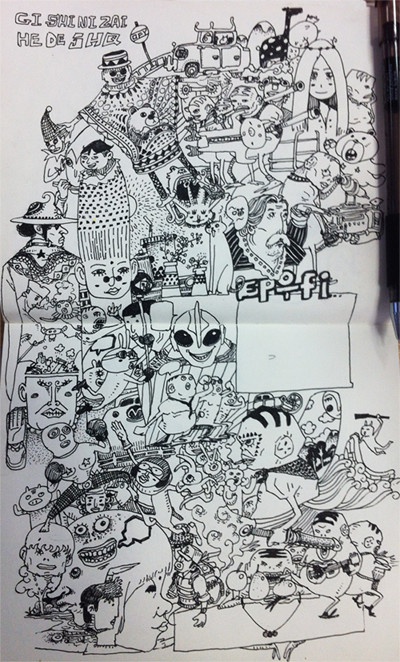 GISHINIZAI
HEDESHQ
EPiFi...